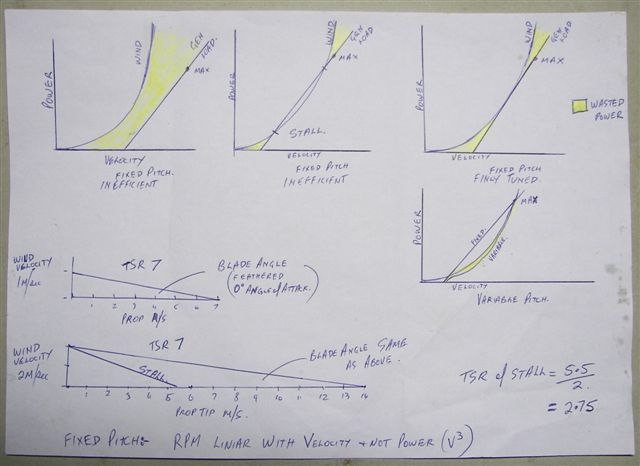 POWER
WIND
GEN
LOAD.
MAX
VELOCITY
FIXED PITCH.
INEFFICIENT
POWER
WIND
GEN
LOAD
MAX
STALL.
VELOCITY
FIXED PITCH
INEFFICIENT
POWER
WIND
GEN
LOAD
MAX
VELOCITY
FIXED PITCH
FINLY TUNED.
WASTED
POWER
POWER
MAX
FIXED
VARIABLE
VELOCITY
VARIABLE PITCH.
WIND
VELOCITY
1M/sec
TSR 7
BLADE ANGLE
(FEATHERED
0° ANGLE of ATTACK.)
1 2 3 4 5 6 7
PROP M/S
WIND
VELOCITY
2M/sec
TSR 7
STALL
BLADE ANGLE SAME
AS ABOVE.
1 2 3 4 5 6 7 8 9 10 11 12 13 14
PROP TIP M/S.
TSR of STALL = 5.5
2.
= 2.75
FIXED PITCH:- RPM LINIAR WITH VELOCITY + NOT POWER (V³)